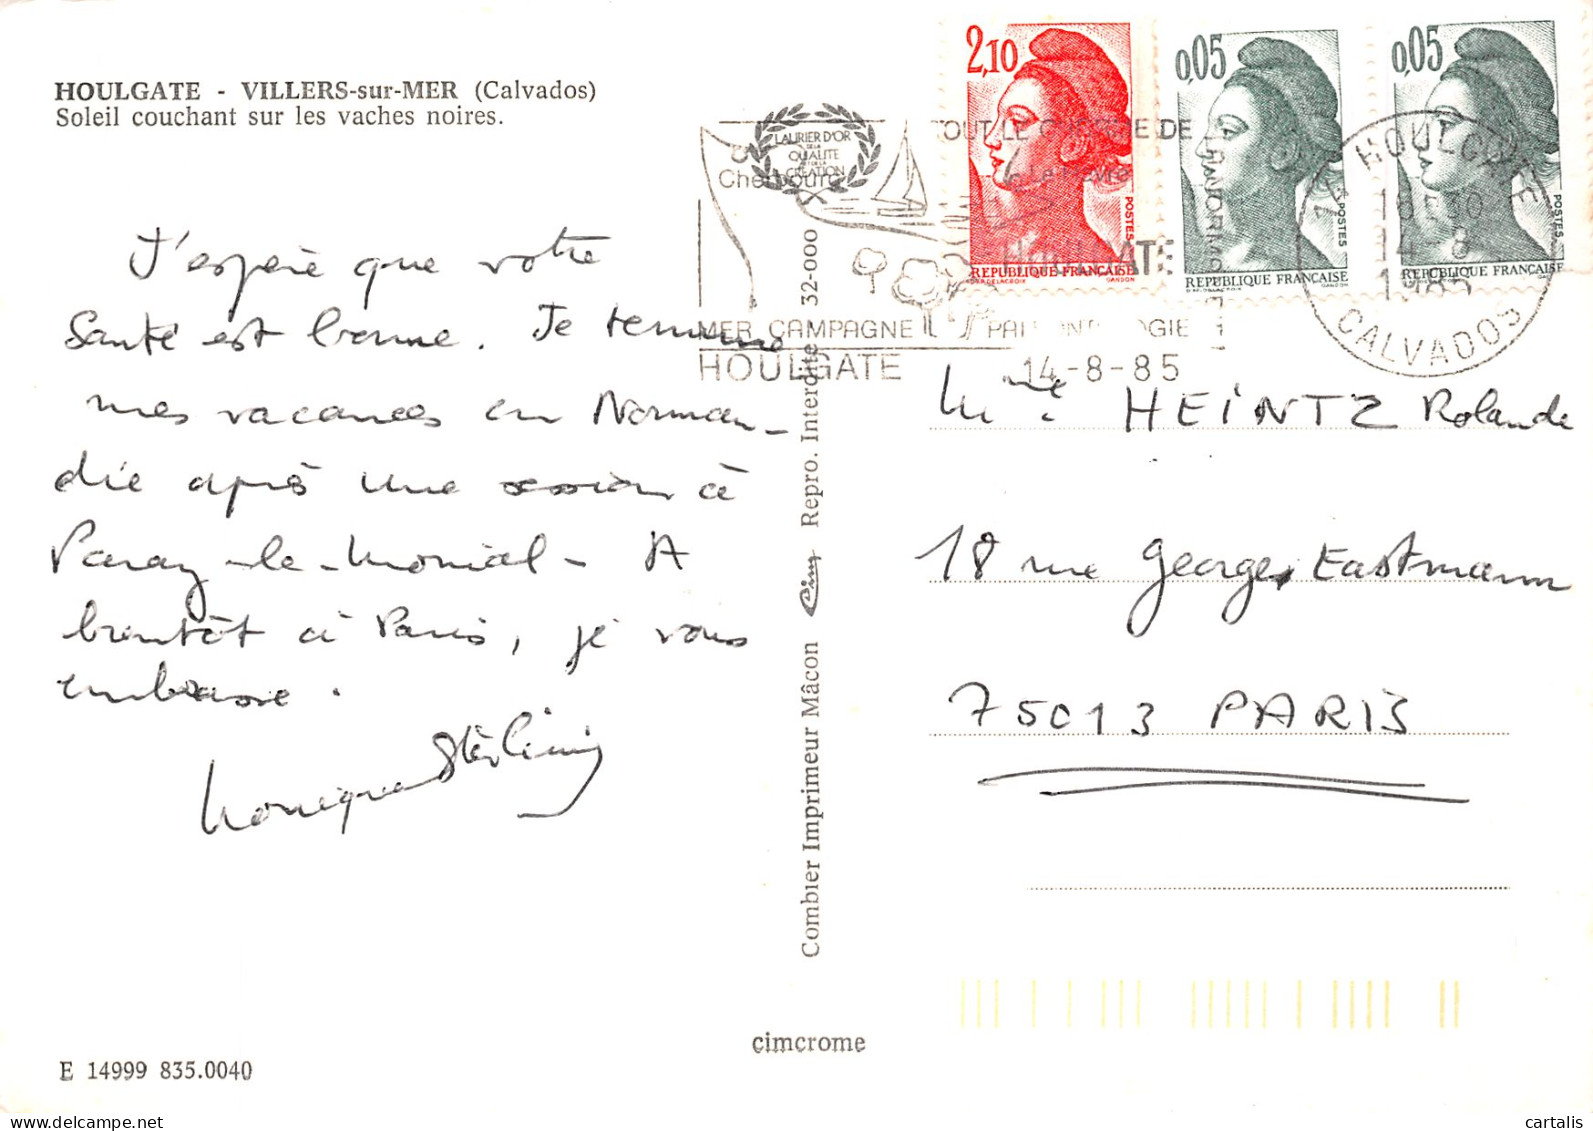 HOULGATE - VILLERS-sur-MER (Calvados)
Soleil couchant sur les vaches noires.
J'espère que votre
santé est bonne. Je termine
mes vacances en Norman-
die après une session à
Paray-le-Monial - A
bientôt à Paris, je vous
embrasse.
Monique
E 14999 835.0040
Combier Imprimeur Mâcon Cim Repro. Interdite 32-000
cimcrome
LAURIER D'OR
DE LA
QUALITE
ET DE LA
CREATION
Cherbourg
Le Havre
HOULGATE
MER CAMPAGNE
HOULGATE 14-8-85
2,10
POSTES
REPUBLIQUE FRANÇAISE
D'AP. DELACROIX GANDON
0,05
POSTES
REPUBLIQUE FRANÇAISE
D'AP. DELACROIX GANDON
0,05
POSTES
REPUBLIQUE FRANÇAISE
GANDON
HOULGATE
14-8
1985
CALVADOS
Mme HEINTZ Rolande
18 rue Georges Eastmann
75013 PARIS
cartalis
delcampe.net